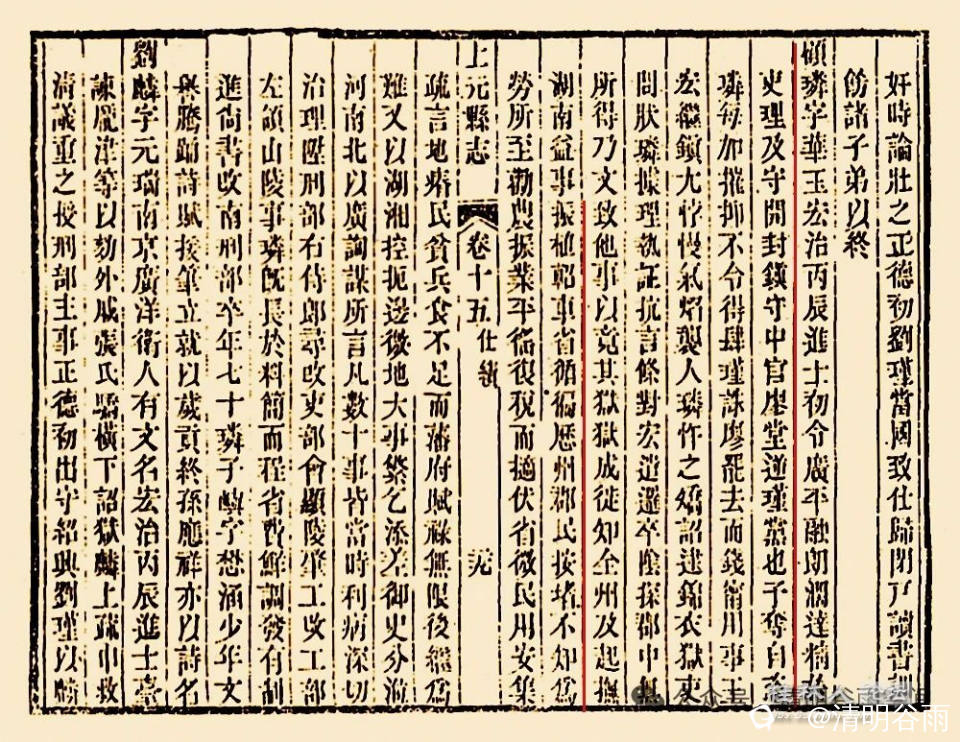 好時論壯之正德初劉瑾當國致仕歸閉戸讀書
飭諸子弟以終
顧璘字華玉宏治丙辰進士初令廣平融朗濶達精於
吏理及守開封鎮守中官廖堂逆瑾黨也予奪自恣
璘每加摧抑不令得肆瑾誅廖罷去而錢甯用事王
宏繼鎮尤悖慢氣焰襲人璘忤之矯詔逮錦衣獄吏
問狀璘據理執証抗言條對宏遣邏卒陰探郡中無
所得乃文致他事以竟其獄獄成徙知全州及起撫
湖南益事振植軺車省循徧歷州郡民按堵不知為
勞所至勸農振業平徭復稅而擿伏省徵民用安集
上元縣志 卷十五 仕績
疏言地瘠民貧兵食不足而藩府賦祿無限後繼為
難又以湖湘控扼邊徼地大事繁乞添差御史分涖
河南北以廣詢謀所言凡數十事皆當時利病深切
治理陞刑部右侍郎尋改吏部會顯陵肇工改工部
左領山陵事璘旣長於料簡而程省費鮮調發有制
進尚書改南刑部卒年七十璘子嶼字懋涵少年文
無騰踊詩賦援筆立就以歲貢終孫應祥亦以詩名
劉麟字元瑞南京廣洋衛人有文名宏治丙辰進士臺
諫龐泮等以劾外戚張氏驕橫下詔獄麟上疏申救
清議重之授刑部主事正德初出守紹興劉瑾以麟
公众号
@清明谷雨